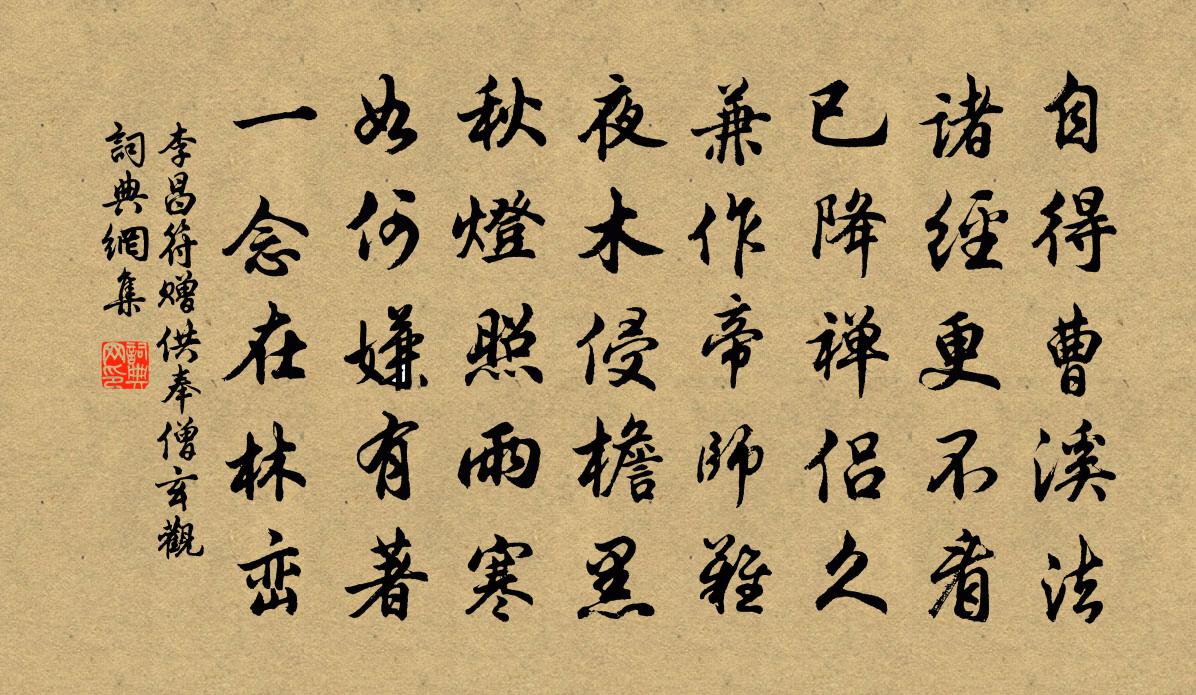 自得曹溪法
諸經更不看
已降禅侣久
兼作帝師難
夜木侵檐黑
秋燈照雨寒
如何嫌有著
一念在林峦
李昌符赠供奉僧玄觀
詞典網集
詞典网印